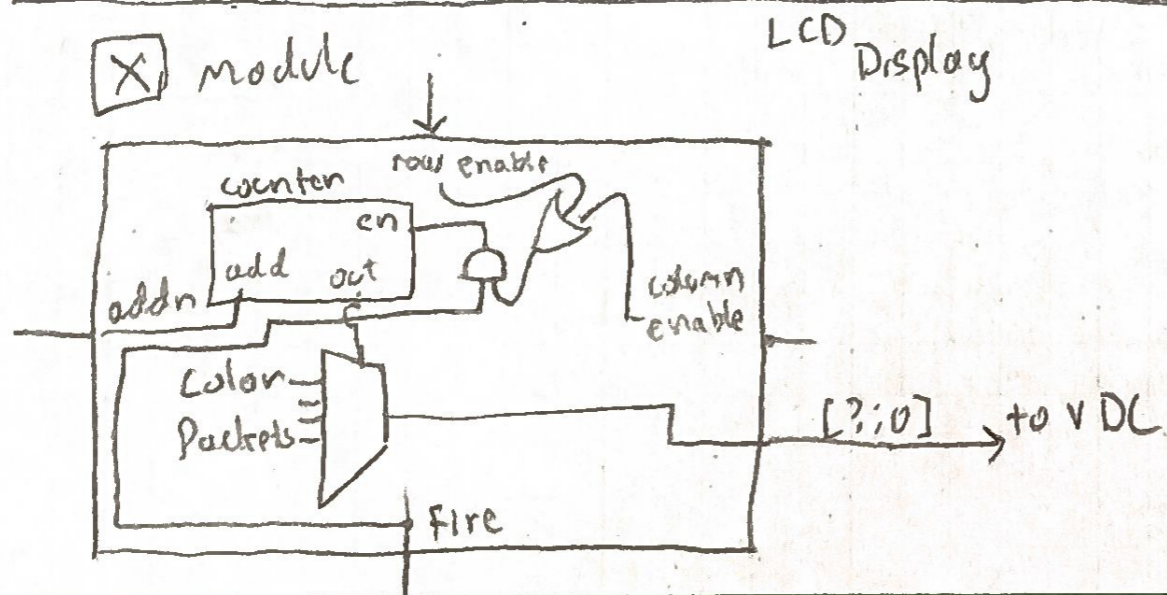 X module
LCD
Display
row enable
counter
en
add
out
addr
column
enable
Color
Packets
[?:0]
to VDC
Fire